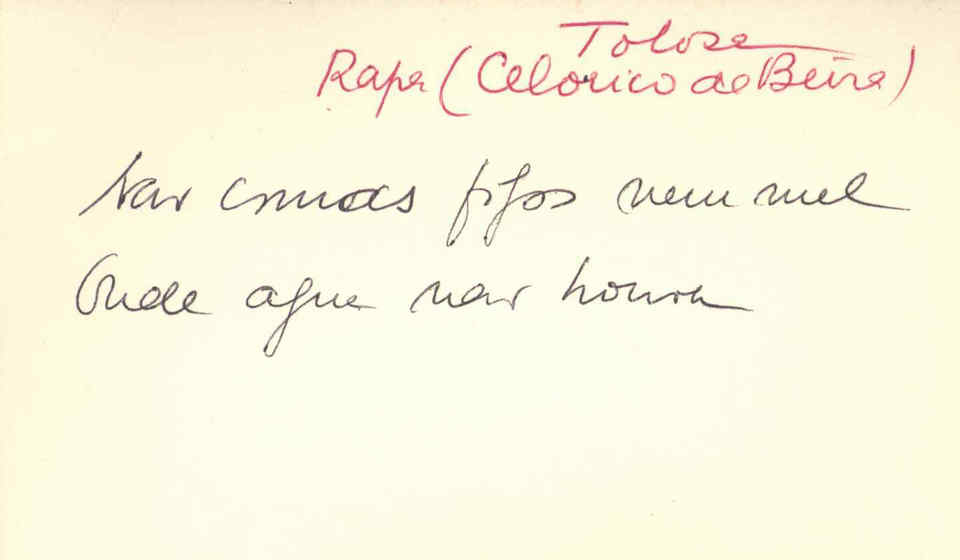 Tolosa
Rapa (Celorico da Beira)
Nao comas figos nem mel
Onde agua nao houver